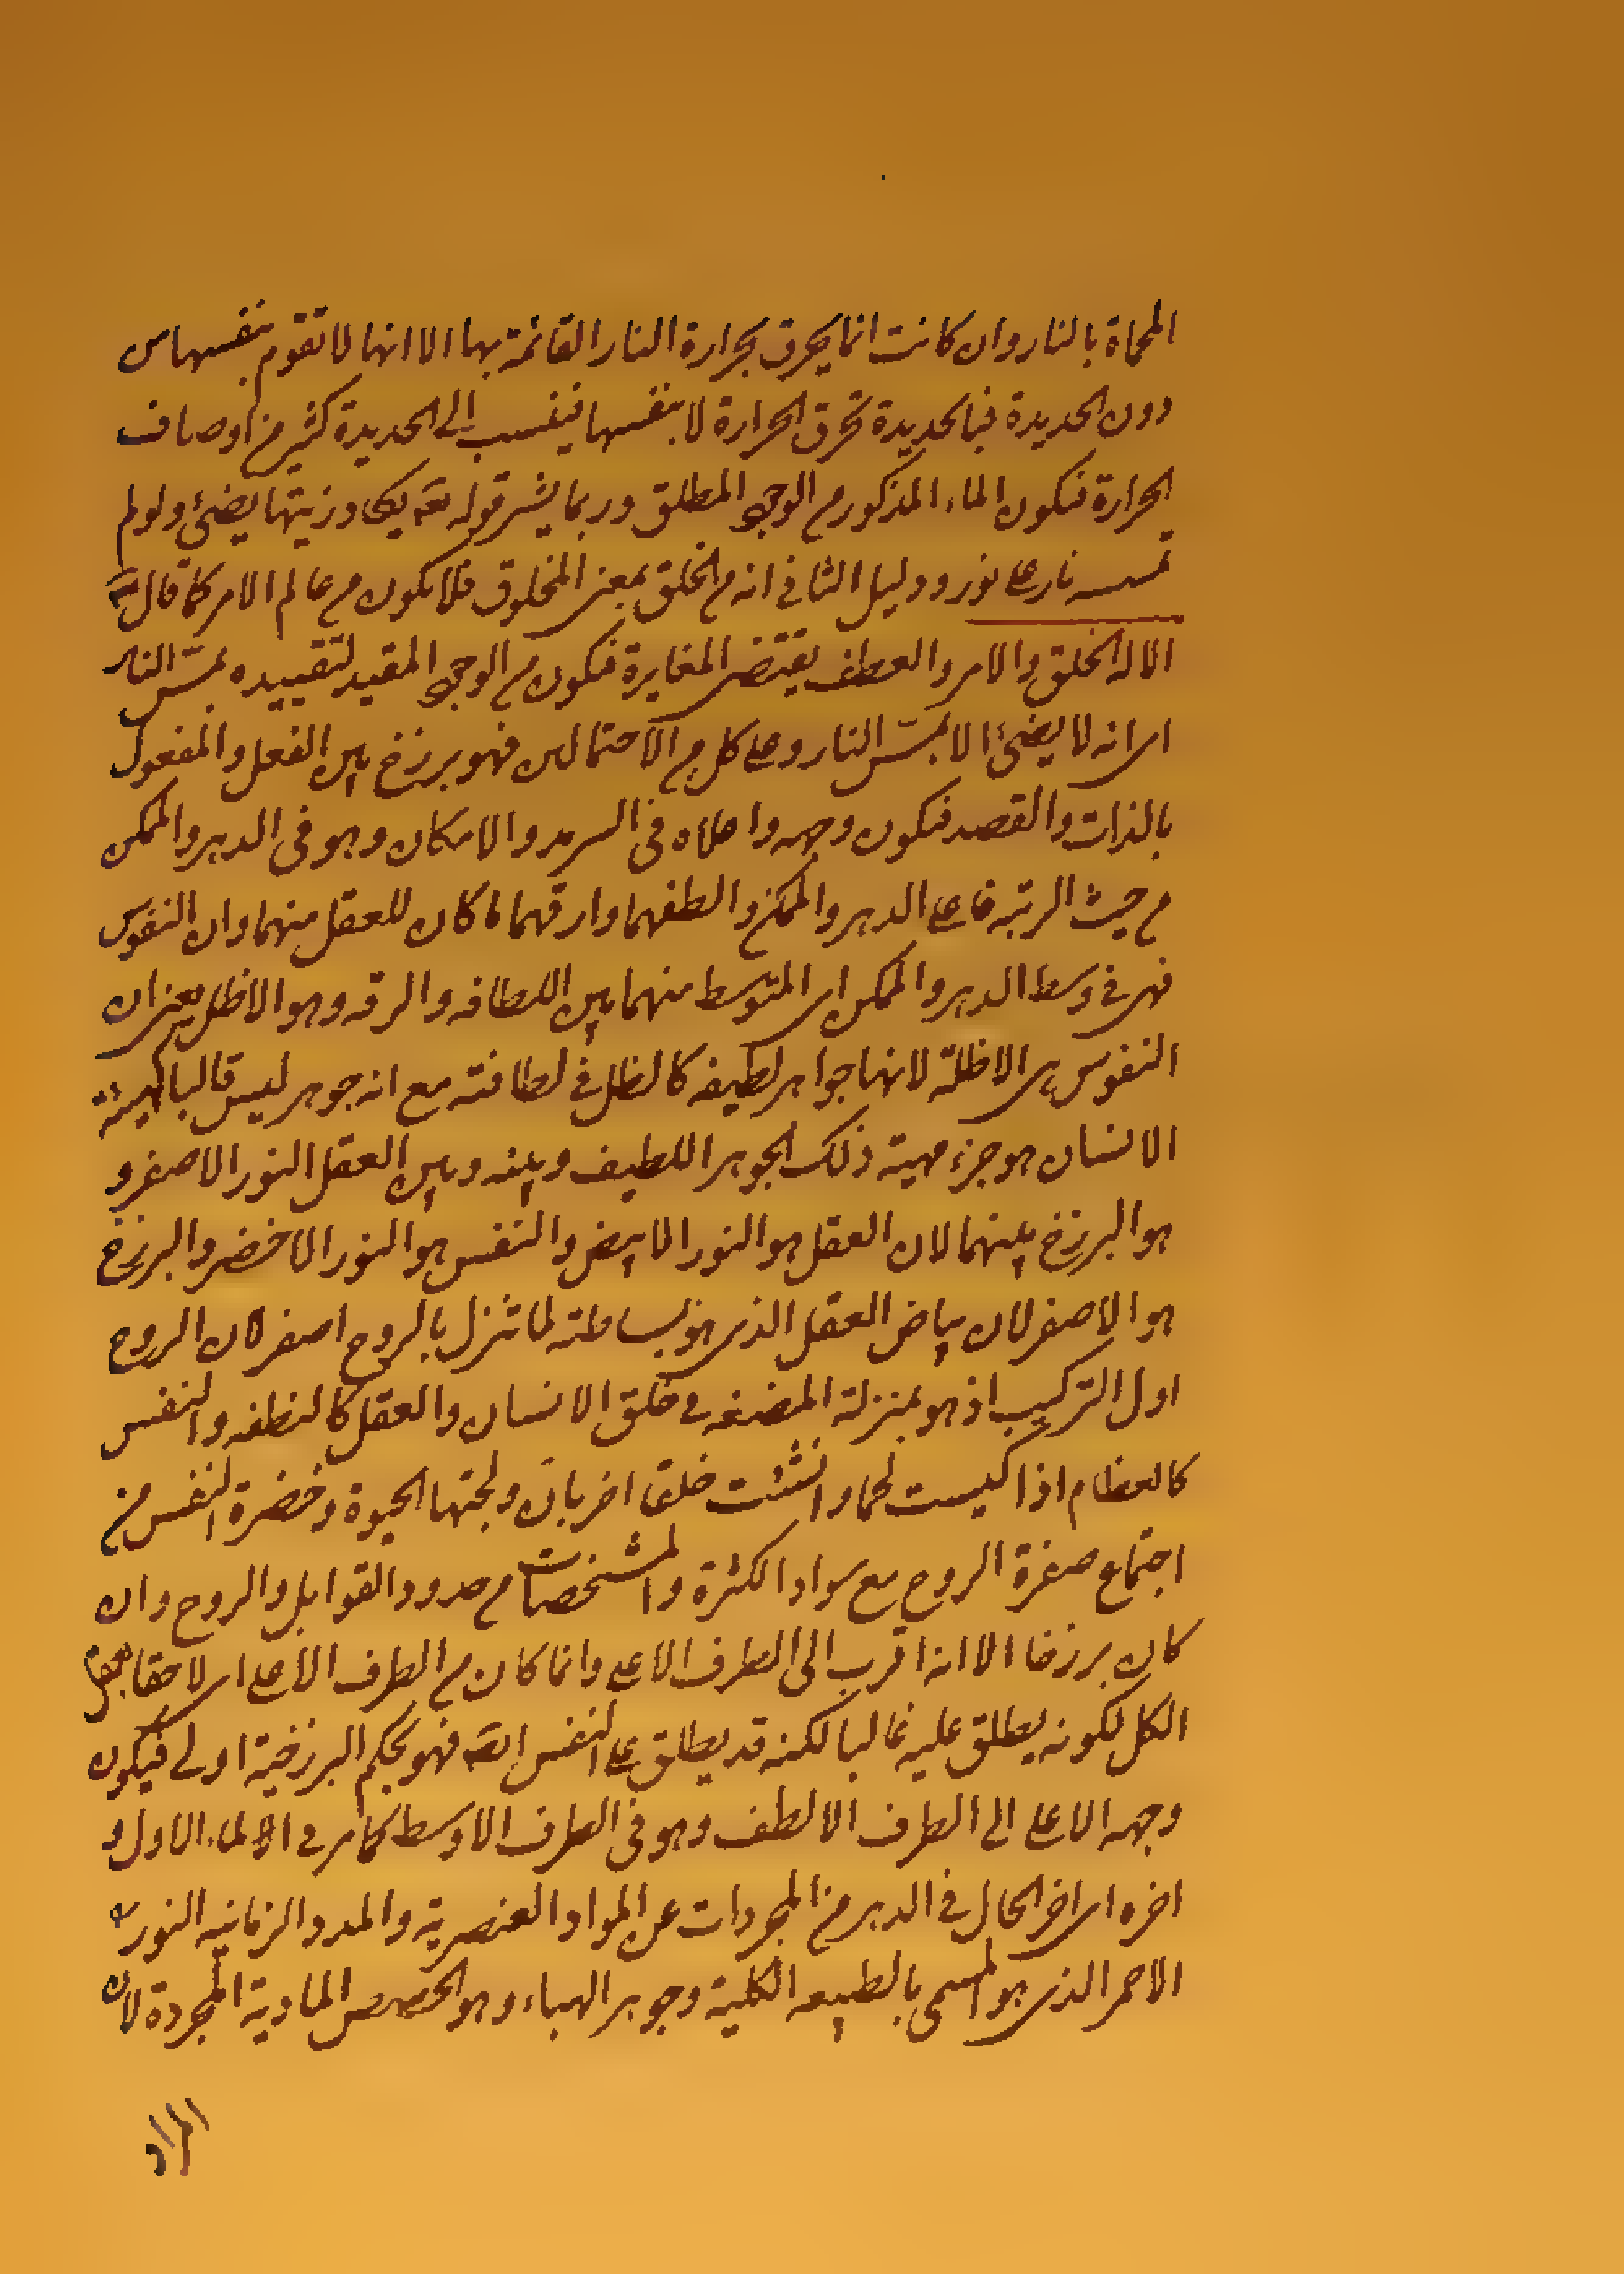 المحماة بالنار وان كانت انما يحرق بحرارة النار القائمة بها الا انها لا تقوم بنفسها من
دون الحديدة فبالحديدة تحرق الحرارة لا بنفسها فينسب الى الحديدة كثير من اوصاف
الحرارة فيكون الماء المذكور من الوجود المطلق وربما يشير قوله تعه يكاد زيتها يضئ ولو لم
تمسسه نار على نور ودليل الثانى انه من الخلق بمعنى المخلوق فلا يكون من عالم الامر كما قال تعه
الا له الخلق والامر والعطف يقتضى المغايرة فيكون من الوجود المقيد لتقييده بمسّ النار
اى انه لا يضئ الا بمسّ النار وعلى كل من الاحتمالين فهو برزخ بين الفعل والمفعول
بالذات والقصد فيكون وجهه واعلاه فى السرمد والامكان وهو فى الدهر والممكن
من حيث الرتبة فاعلى الدهر والممكن والطفهما وارقهما ما كان للعقل منهما وان النفوس
فهى فى وسط الدهر والممكن اى المتوسط منهما بين اللطافه والرقه وهو الاظل يعنى ان
النفوس هى الاظلة لانها جواهر لطيفه كالظل فى لطافته مع انه جوهر ليس قالبا لهيئة
الانسان هو جزء مهية ذلك الجوهر اللطيف وبينه وبين العقل النور الاصفر و
هو البرزخ بينهما لان العقل هو النور الابيض والنفس هو النور الاخضر والبرزخ
هو الاصفر لان بياض العقل الذى هو بساطته لما تنزل بالروح اصفر لان الروح
اول التركيب اذ هو بمنزلة المضغه فى خلق الانسان والعقل كالنطفه والنفس
كالعظام اذا كسيت لحما وانشئت خلقا اخر بان ولجتها الحيوة وخضرة النفس من
اجتماع صفرة الروح مع سواد الكثرة والمشخصات من حدود القوابل والروح وان
كان برزخا الا انه اقرب الى الطرف الاعلى وانما كان من الطرف الاعلى اى لاحقا بعقل
الكل لكونه يطلق عليه غالبا لكنه قد يطلق على النفس ايضه فهو بحكم البرزخية اولى فيكون
وجهه الاعلى الى الطرف الالطف وهو فى الطرف الاوسط كما مر فى الماء الاول و
اخره اى اخر الحال فى الدهر من المجردات عن المواد العنصرية والمدد الزمانيه النور
الاحمر الذى هو المسمى بالطبيعه الكلية وجوهر الهباء وهو الحصص المادية المجردة لان
المراد